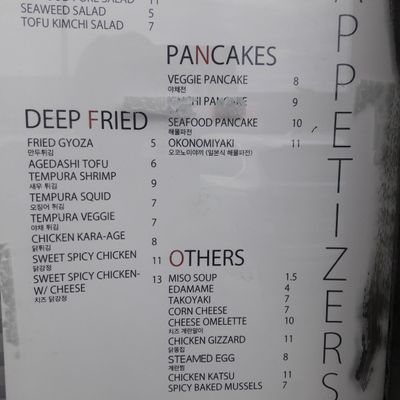 SEAWEED SALAD 5
TOFU KIMCHI SALAD 7
DEEP FRIED
FRIED GYOZA 5
만두튀김
AGEDASHI TOFU 6
TEMPURA SHRIMP 9
새우 튀김
TEMPURA SQUID 7
오징어 튀김
TEMPURA VEGGIE 7
야채 튀김
CHICKEN KARA-AGE 8
닭튀김
SWEET SPICY CHICKEN 11
닭강정
SWEET SPICY CHICKEN- 13
W/ CHEESE
치즈 닭강정
PANCAKES
VEGGIE PANCAKE 8
야채전
KIMCHI PANCAKE 9
SEAFOOD PANCAKE 10
해물파전
OKONOMIYAKI 11
오코노미야끼 (일본식 해물파전)
OTHERS
MISO SOUP 1.5
EDAMAME 4
TAKOYAKI 7
CORN CHEESE 7
CHEESE OMELETTE 10
치즈 계란말이
CHICKEN GIZZARD 11
닭똥집
STEAMED EGG 8
계란찜
CHICKEN KATSU 11
SPICY BAKED MUSSELS 7
APPETIZERS